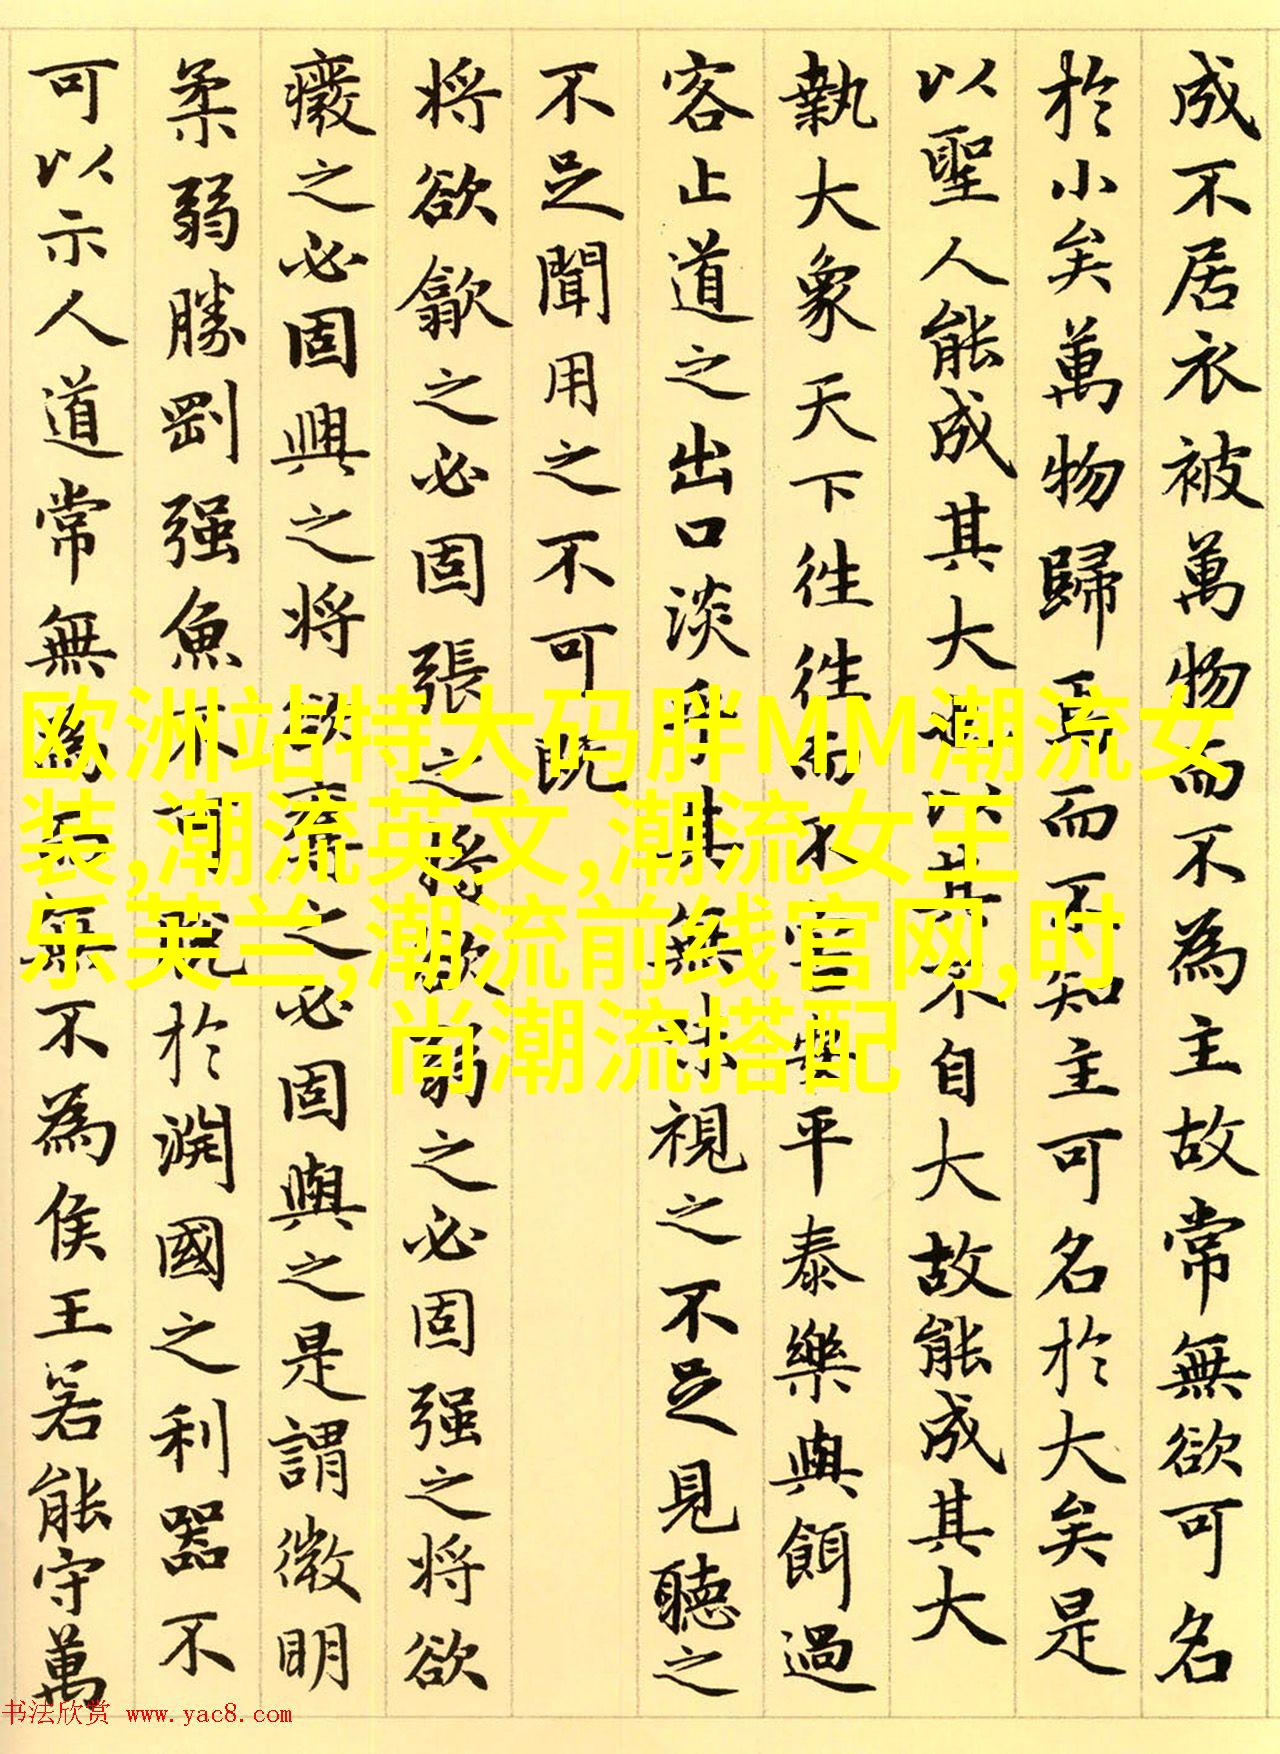 成不居衣被萬物而不為主故常無欲可名
於小矣萬物歸焉而不知主可名於大矣是
以聖人能成其大以其不自大故能成其大
執大象天下往往而不害安平泰樂與餌過
客止道之出口淡乎其無味視之不足見聽之
不足聞用之不可既
將欲歙之必固張之將欲弱之必固强之將欲
癈之必固興之將欲奪之必固與之是謂微明
柔弱勝剛强魚不可脫於淵國之利器不
可以示人道常無為而無不為侯王若能守萬
欧洲站特大码胖MM潮流女
装,潮流英文,潮流女王
乐芙兰,潮流前线官网,时
尚潮流搭配
书法欣赏 www.yac8.com